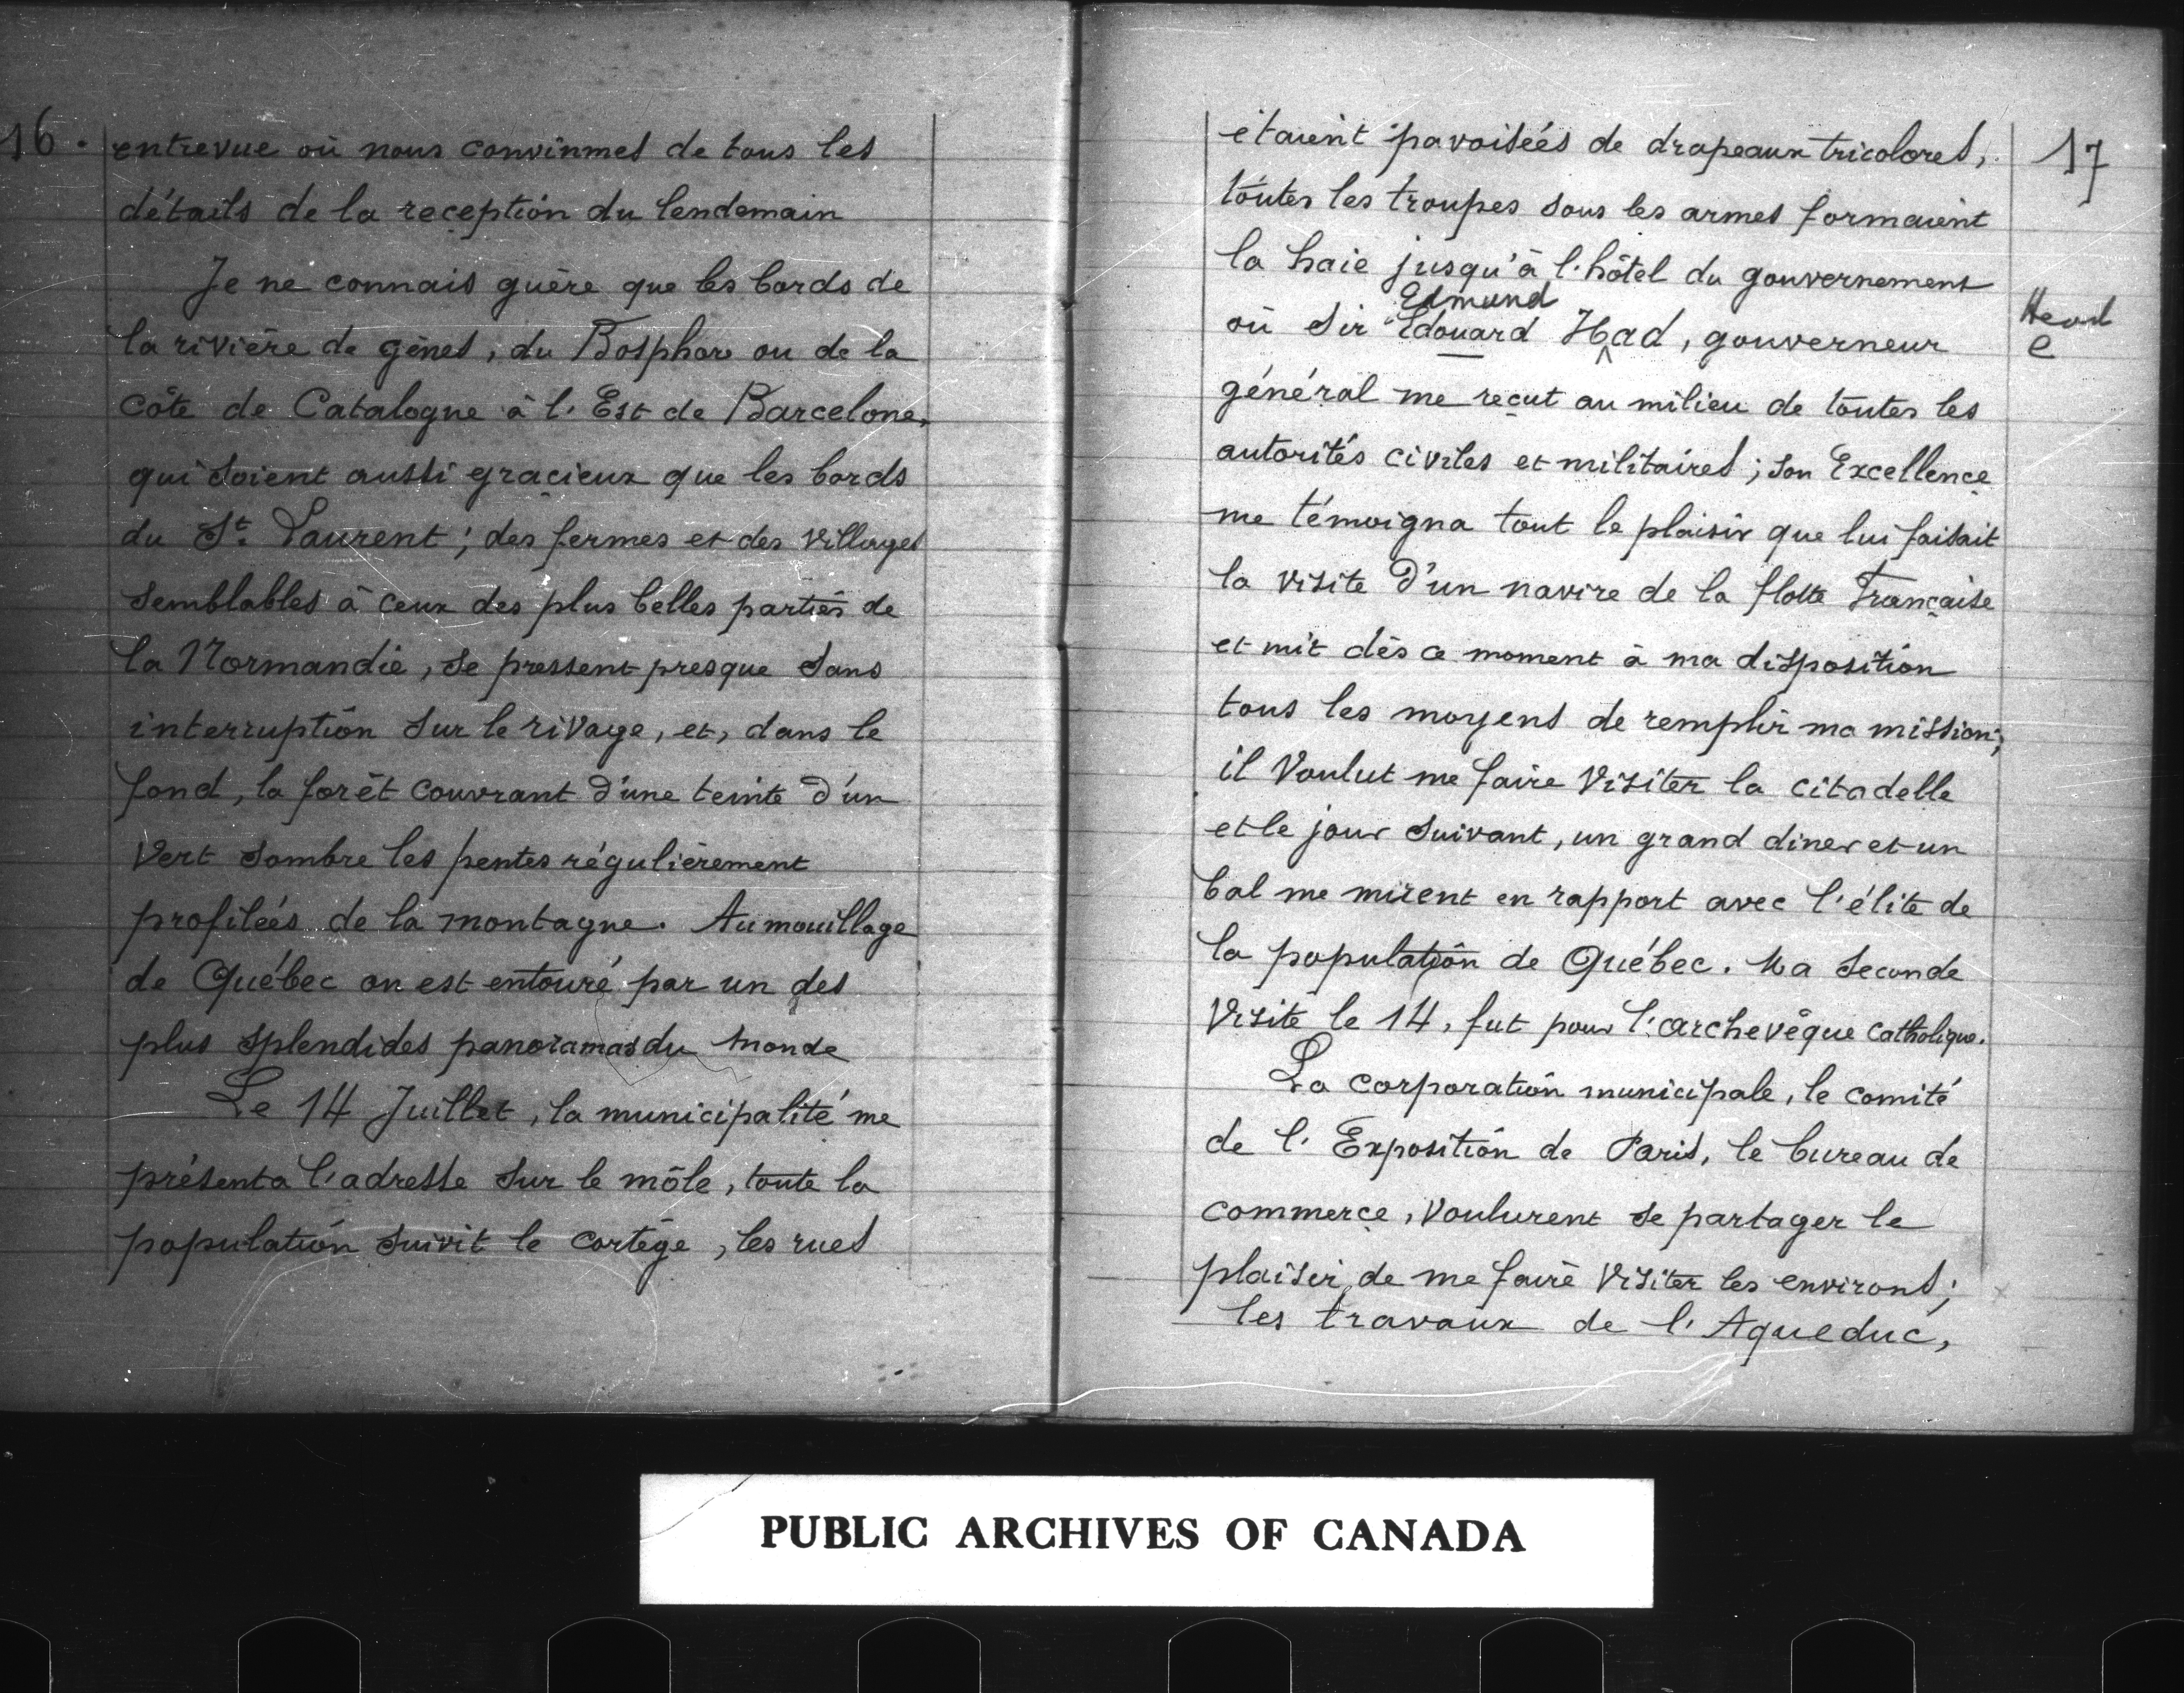 16.
entrevue où nous convînmes de tous les
détails de la reception du lendemain
Je ne connais guère que les bords de
la rivière de gênes, du Bosphore ou de la
Côte de Catalogne à l'Est de Barcelone,
qui soient aussi gracieux que les bords
du St. Laurent; des fermes et des villages
semblables à ceux des plus belles parties de
la Normandie, se pressent presque sans
interruption sur le rivage, et, dans le
fond, la forêt couvrant d'une teinte d'un
vert sombre les pentes régulièrement
profilées de la montagne. Au mouillage
de Québec on est entouré par un des
plus splendides panoramas du monde
Le 14 Juillet, la municipalité me
présenta l'adresse sur le môle, toute la
population suivit le cortège, les rues
17
étaient pavoisées de drapeaux tricolores,
toutes les troupes sous les armes formaient
la haie jusqu'à l'hôtel du gouvernement
Edmund
où Sir Edouard Had, gouverneur
Head
e
général me reçut au milieu de toutes les
autorités civiles et militaires; son Excellence
me témoigna tout le plaisir que lui faisait
la visite d'un navire de la flotte Française
et mit dès ce moment à ma disposition
tous les moyens de remplir ma mission;
il voulut me faire visiter la citadelle
et le jour suivant, un grand diner et un
bal me mirent en rapport avec l'élite de
la population de Québec. Ma seconde
visite le 14, fut pour l'archevêque catholique.
La corporation municipale, le comité
de l'Exposition de Paris, le bureau de
commerce, voulurent se partager le
plaisir de me faire visiter les environs;
les travaux de l'Aqueduc,
PUBLIC ARCHIVES OF CANADA